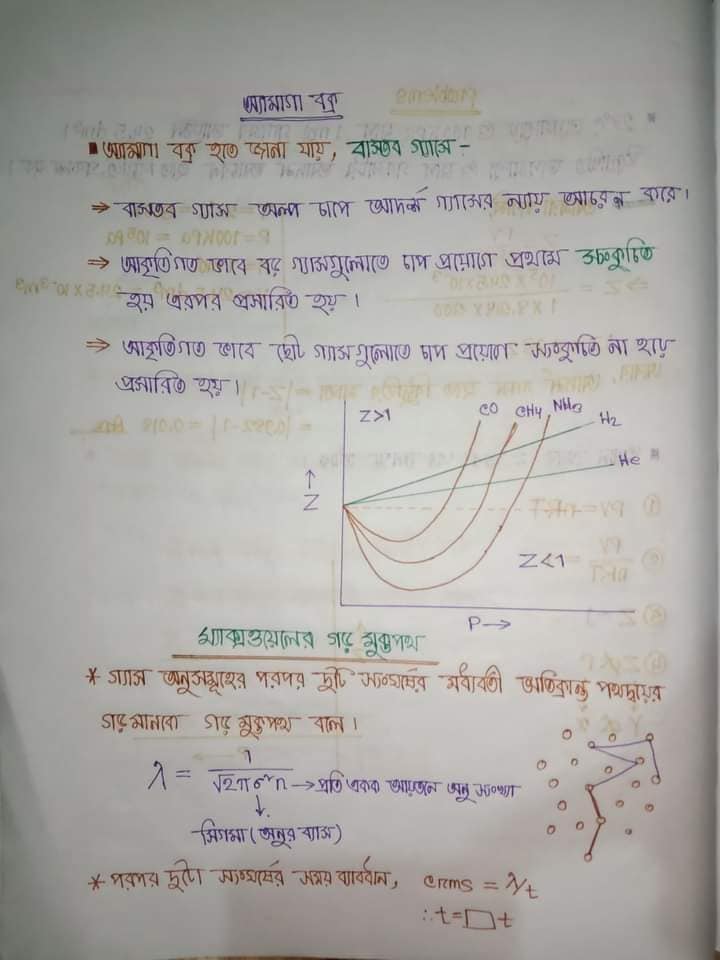 অ্যামাগা বক্র
▪ অ্যামাগা বক্র হতে জানা যায়, বাস্তব গ্যাসে -
⇒ বাস্তব গ্যাস অল্প চাপে আদর্শ গ্যাসের ন্যায় আচরন করে।
⇒ আকৃতিগত ভাবে বড় গ্যাসগুলোতে চাপ প্রয়োগে প্রথমে সংকুচিত
হয় এরপর প্রসারিত হয়।
⇒ আকৃতিগত ভাবে ছোট গ্যাসগুলোতে চাপ প্রয়োগে সংকুচিত না হয়ে
প্রসারিত হয়।
Z>1 CO CH4 NH3 H2
He
↑
Z
Z<1
P→
ম্যাক্সওয়েলের গড় মুক্তপথ
* গ্যাস অনুসমূহের পরপর দুটি সংঘর্ষের মধ্যবর্তী অতিক্রান্ত পথদ্বয়ের
গড়মানকে গড় মুক্তপথ বলে।
λ = 1/√2πσ²n → প্রতি একক আয়তনে অনু সংখ্যা
↓
সিগমা (অনুর ব্যাস)
* পরপর দুটো সংঘর্ষের সময় ব্যাবধান, crms = λ/t
∴ t = □ t